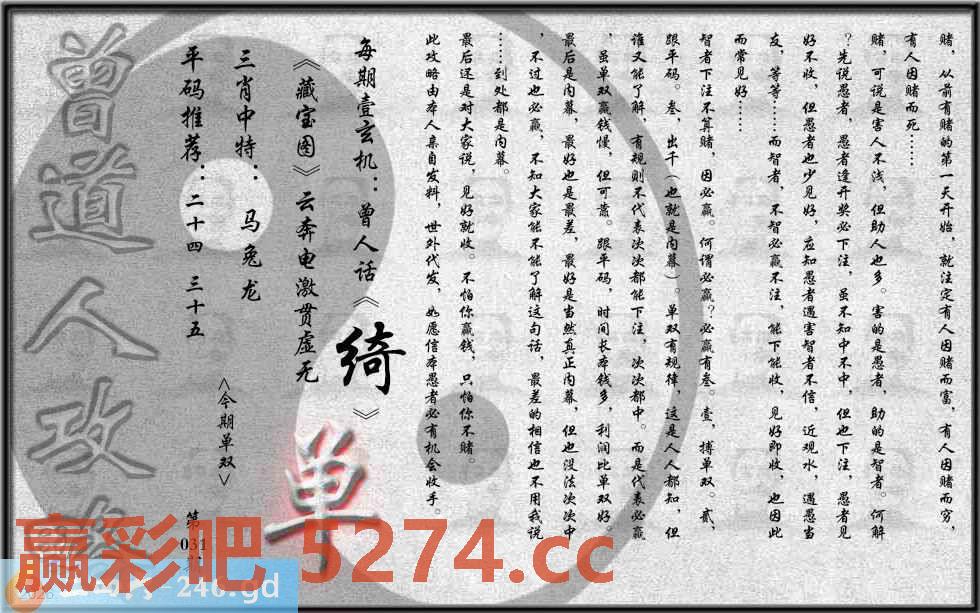 赌，从前有赌的第一天开始，就注定有人因赌而富，有人因赌而穷，
有人因赌而死……
赌，可说是害人不浅，但助人也多。害的是愚者，助的是智者。何解
？先说愚者，愚者逢开奖必下注，虽不知中不中，但也下注，愚者见
好不收，但愚者也少见好，应知愚者遇害智者不信，近观水，遇愚当
友，等等……而智者，不智必赢不注，能下能收，见好即收，也因此
而常见好……
智者下注不算赌，因必赢。何谓必赢？必赢有叁。壹，搏单双。贰，
跟平码。叁，出千（也就是内幕）。单双有规律，这是人人都知，但
谁又能了解，有规则不代表次次都能下注，次次都中。而是代表必赢
，虽单双赢钱慢，但可靠。跟平码，时间长本钱多，利润比单双好。
最后是内幕，最好也是最差，最好是当然真正内幕，但也没法次次中
，不过也必赢，不知大家能不能了解这句话，最差的相信也不用我说
……到处都是内幕。
最后还是对大家说，见好就收。不怕你赢钱，只怕你不赌。
此攻略由本人亲自发料，世外代发，如愿信本愚者必有机会收手。
每期壹玄机：曾人话《绮》
《藏宝图》云奔电激贯虚无
三肖中特：马兔龙
平码推荐：二十四 三十五
<今期单双>
单
第031
曾道人攻
赢彩吧 5274.cc
246.gd